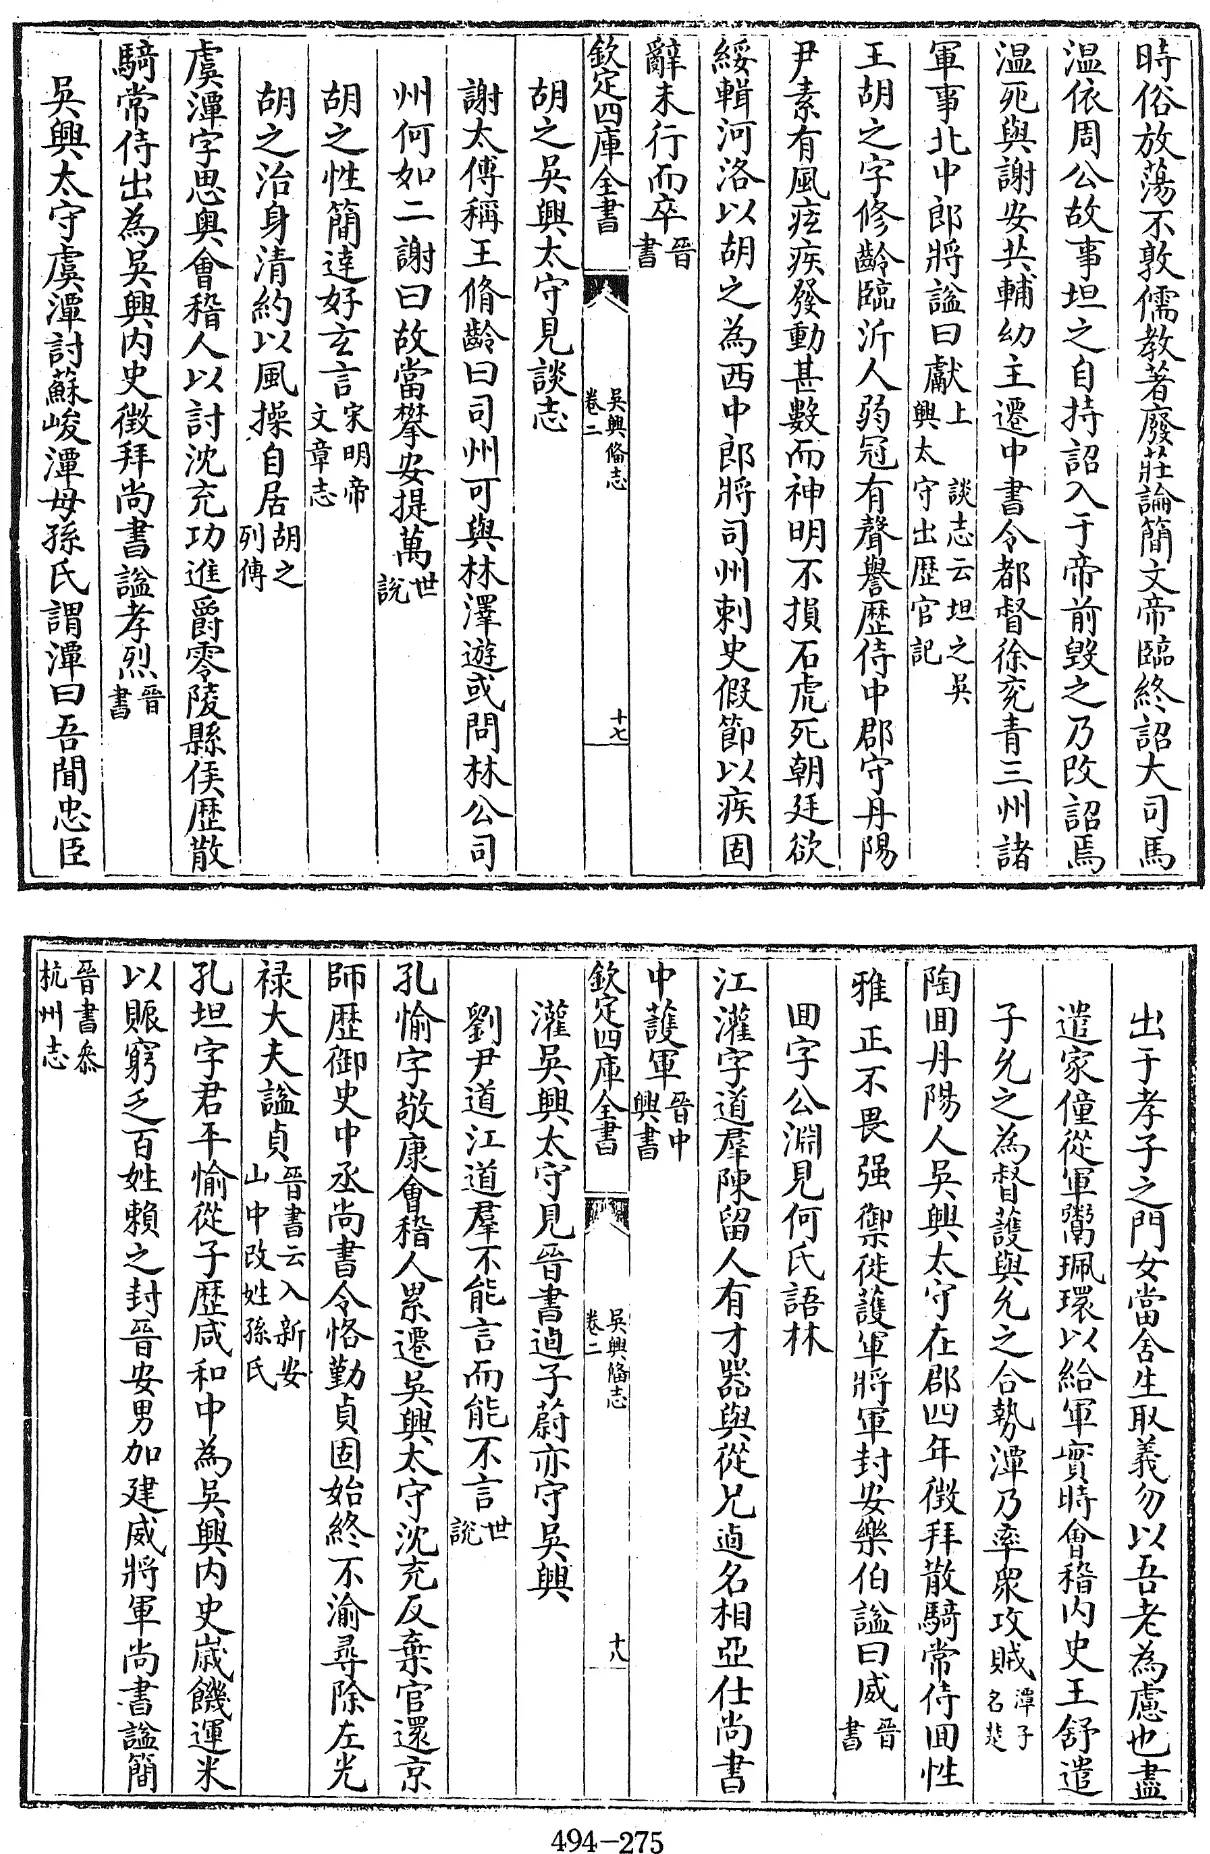 時俗放蕩不敦儒教著廢莊論簡文帝臨終詔大司馬
温依周公故事坦之自持詔入于帝前毀之乃改詔焉
温死與謝安共輔幼主遷中書令都督徐兖青三州諸
軍事北中郎將諡曰獻上談志云坦之吳
興太守出歴官記
王胡之字修齡臨沂人弱冠有聲譽歴侍中郡守丹陽
尹素有風疰疾發動甚數而神明不損石虎死朝廷欲
綏輯河洛以胡之為西中郎將司州刺史假節以疾固
辭未行而卒晉
書
欽定四庫全書
吳興備志
卷二
十七
胡之吳興太守見談志
謝太傅稱王脩齡曰司州可與林澤遊或問林公司
州何如二謝曰故當攀安提萬世
說
胡之性簡達好玄言宋明帝
文章志
胡之治身清約以風操自居胡之
列傳
虞潭字思奥會稽人以討沈充功進爵零陵縣侯歴散
騎常侍出為吳興内史徴拜尚書諡孝烈晉
書
吳興太守虞潭討蘇峻潭母孫氏謂潭曰吾聞忠臣
出于孝子之門女當舍生取義勿以吾老為慮也盡
遣家僮從軍鬻珮環以給軍實時會稽内史王舒遣
子允之為督護與允之合勢潭乃率衆攻賊潭子
名楚
陶回丹陽人吳興太守在郡四年徴拜散騎常侍回性
雅正不畏强禦徙護軍將軍封安樂伯諡曰威晉
書
回字公淵見何氏語林
江灌字道羣陳留人有才器與從兄逌名相亞仕尚書
中護軍晉中
興書
欽定四庫全書
吳興備志
卷二
十八
灌吳興太守見晉書逌子蔚亦守吳興
劉尹道江道羣不能言而能不言世
說
孔愉字敬康會稽人累遷吳興太守沈充反棄官還京
師歴御史中丞尚書令恪勤貞固始終不渝尋除左光
禄大夫諡貞晉書云入新安
山中改姓孫氏
孔坦字君平愉從子歴咸和中為吳興内史嵗饑運米
以賑窮乏百姓賴之封晉安男加建威將軍尚書諡簡
晉書叅
杭州志
494-275